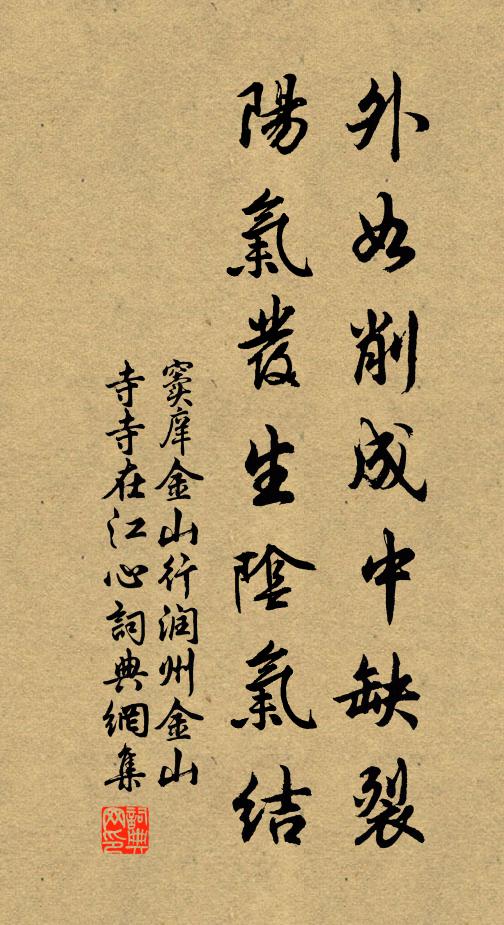 外如削成中缺裂
陽氣發生陰氣結
竇庠金山行润州金山
寺寺在江心詞典網集
詞典网印